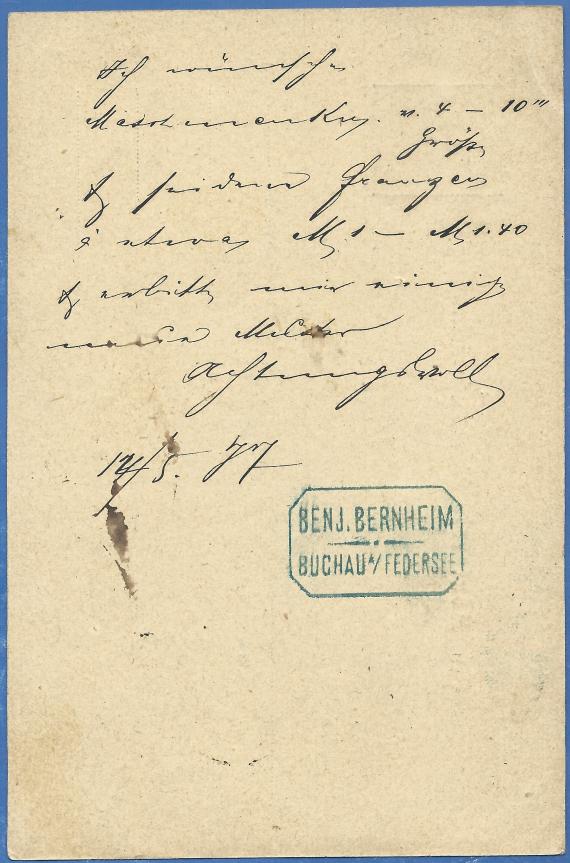 Ich wünsche
v. 4 – 10'''
Größe
& seidene Franzen
à etwas M 1 – M 1.40
& erbitte mir einige
neue Muster
Achtungsvoll
14/5. 77
BENJ. BERNHEIM
BUCHAU A/FEDERSEE